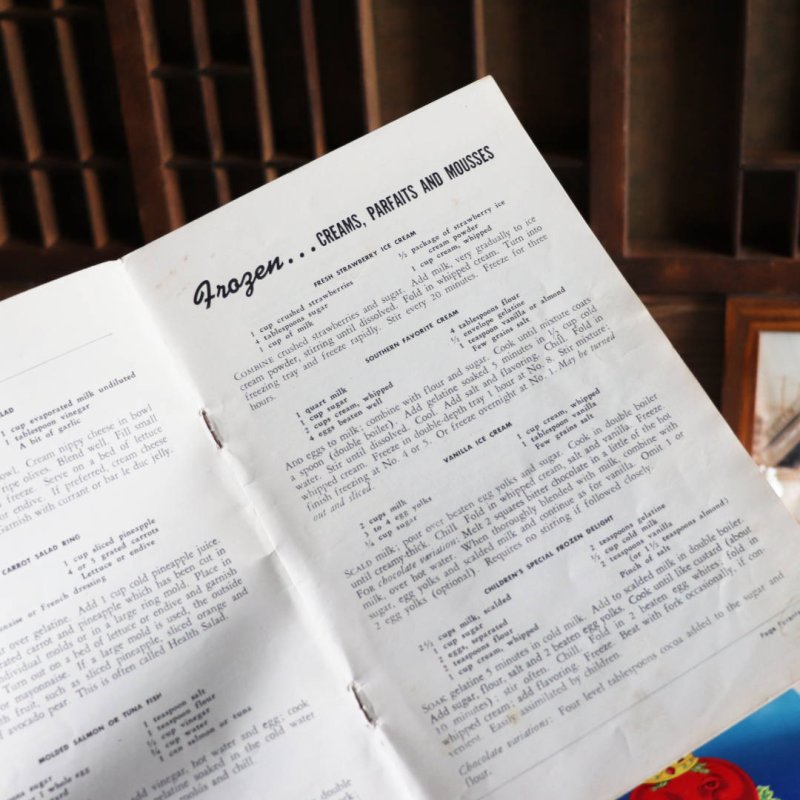 LAD
1 cup evaporated milk undiluted
1 tablespoon vinegar
A bit of garlic
bowl. Cream nippy cheese in bowl
ripe olives. Blend well. Fill small
freeze. Serve on a bed of lettuce
or endive. If preferred, cream cheese
Garnish with currant or bar le duc jelly.
CARROT SALAD RING
1 cup sliced pineapple
4 or 5 grated carrots
Lettuce or endive
or French dressing
over gelatine. Add 1 cup cold pineapple juice.
carrot and pineapple which has been cut in
dividual molds or in a large ring mold. Place in
Turn out on a bed of lettuce or endive and garnish
or mayonnaise. If a large mold is used, the outside
with fruit, such as sliced pineapple, sliced orange and
avocado pear. This is often called Health Salad.
MOLDED SALMON OR TUNA FISH
1 teaspoon salt
1 teaspoon flour
¼ cup vinegar
¼ cup water
1 can salmon or tuna
sugar
1 whole egg
add vinegar, hot water and egg; cook
gelatine soaked in the cold water
molds and chill.
double
Frozen... CREAMS, PARFAITS AND MOUSSES
FRESH STRAWBERRY ICE CREAM
1 cup crushed strawberries
4 tablespoons sugar
1 cup of milk
½ package of strawberry ice
cream powder
1 cup cream, whipped
COMBINE crushed strawberries and sugar. Add milk, very gradually to ice
cream powder, stirring until dissolved. Fold in whipped cream. Turn into
freezing tray and freeze rapidly. Stir every 20 minutes. Freeze for three
hours.
SOUTHERN FAVORITE CREAM
1 quart milk
1 cup sugar
2 cups cream, whipped
4 eggs beaten well
4 tablespoons flour
½ envelope gelatine
1 teaspoon vanilla or almond
Few grains salt
ADD eggs to milk; combine with flour and sugar. Cook until mixture coats
a spoon (double boiler). Add gelatine soaked 5 minutes in ½ cup cold
water. Stir until dissolved. Cool. Add salt and flavoring. Chill. Fold in
whipped cream. Freeze in double-depth tray 1 hour at No. 8. Stir mixture;
finish freezing at No. 4 or 5. Or freeze overnight at No. 1. May be turned
out and sliced.
VANILLA ICE CREAM
2 cups milk
3 to 4 egg yolks
¾ cup sugar
1 cup cream, whipped
1 tablespoon vanilla
Few grains salt
SCALD milk; pour over beaten egg yolks and sugar. Cook in double boiler
until creamy-thick. Chill. Fold in whipped cream, salt and vanilla. Freeze.
FOR chocolate variation: Melt 2 squares bitter chocolate in a little of the hot
milk, over hot water. When thoroughly blended with milk, combine with
sugar, egg yolks and scalded milk and continue as for vanilla. Omit 1 or
2 egg yolks (optional). Requires no stirring if followed closely.
CHILDREN'S SPECIAL FROZEN DELIGHT
2½ cups milk, scalded
1 cup sugar
2 eggs, separated
2 teaspoons flour
1 cup cream, whipped
2 teaspoons gelatine
½ cup cold milk
2 teaspoons vanilla
(or 1½ teaspoons almond)
Pinch of salt
SOAK gelatine 5 minutes in cold milk. Add to scalded milk in double boiler.
Add sugar, flour, salt and 2 beaten egg yolks. Cook until like custard (about
10 minutes), stir often. Chill. Fold in 2 beaten egg whites; fold in
whipped cream; add flavoring. Freeze. Beat with fork occasionally, if con-
venient. Easily assimilated by children.
Chocolate variations: Four level tablespoons cocoa added to the sugar and
flour.
Page